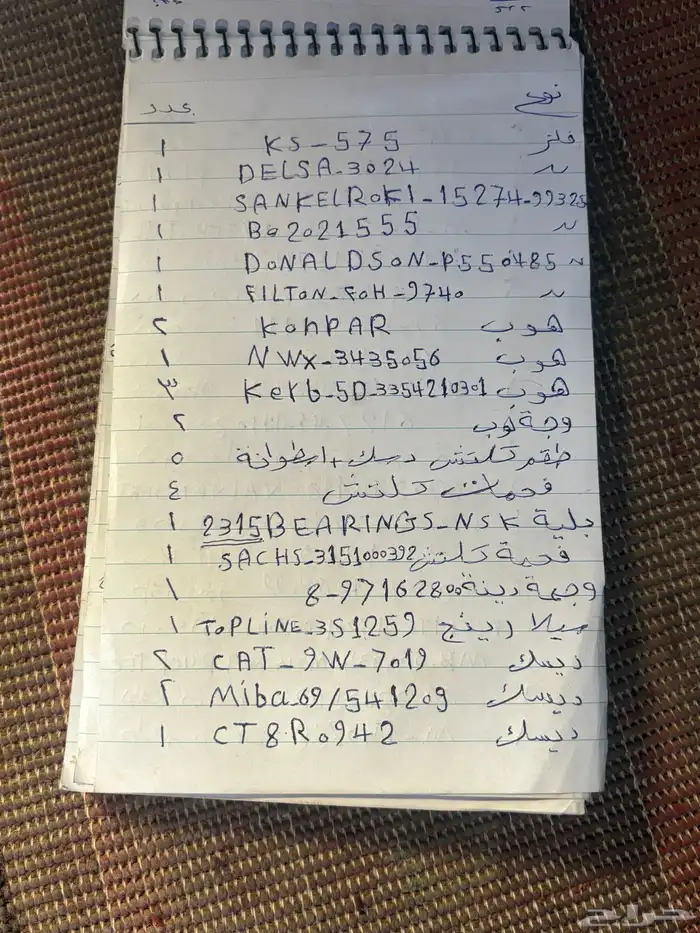 نوع عدد
فلتر KS-575 ١
〃 DELSA-3024 ١
SANKELROKI-15274-99325 ١
〃 Bo2021555 ١
〃 DONALDSON-P550485 ١
〃 FILTON-FOH-9740 ١
هوب KOHPAR ٢
هوب NWX-3435056 ١
هوب Kerb-5D-3354210301 ٣
وجة هوب ٢
طقم كلتش دسك+اسطوانة ٥
فحمات كلتش ٤
بلية 2315BEARINGS-NSK ١
فحمة كلتش SACHS-3151000392 ١
وجهة دينة 8-97162800 ١
رينج TOPLINE-3S1259 ١
ديسك CAT-9W-7019 ٢
ديسك Miba-69/541209 ٢
ديسك CT8R0942 ١
حراج